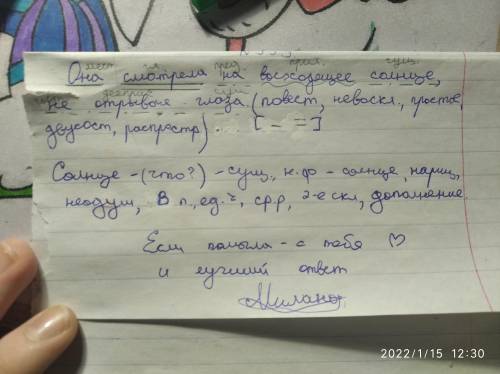 мест. гл. предл. прил. сущ.
Она смотрела на восходящее солнце,
не отрывая глаза. (повест., невоскл., простое,
двусост, распростр) [_ =]
Солнце - (что?) - сущ., н.ф - солнце, нариц,
неодуш, В п., ед. ч, ср.р, 2-е скл, дополнение.
Если помогла - с тебя ♡
и лучший ответ
Милана
2022/1/15 12:30